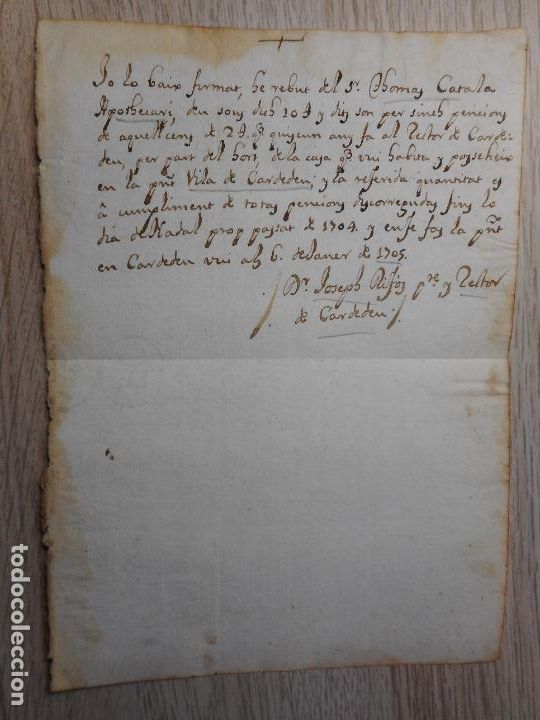 Jo lo baix firmat, he rebut del Sr. Thomas Catala
Apothecari, deu sous dich 10 ȣ y dits son per sinch pencions
de aquell cens de 2 ȣ q̃ quiscun any fa al Rector de Carde-
deu, per part del hort, de la casa q̃ vui habita y posseheix
en la pñt Vila de Cardedeu; y la referida quantitat es
â cumpliment de totas pencions discorregudas fins lo
dia de Nadal prop passat de 1704. y en fe fas la pñt
en Cardedeu vui als 6. de Janer de 1705.
Dr. Joseph pre. y Rector
de Cardedeu
todocoleccion